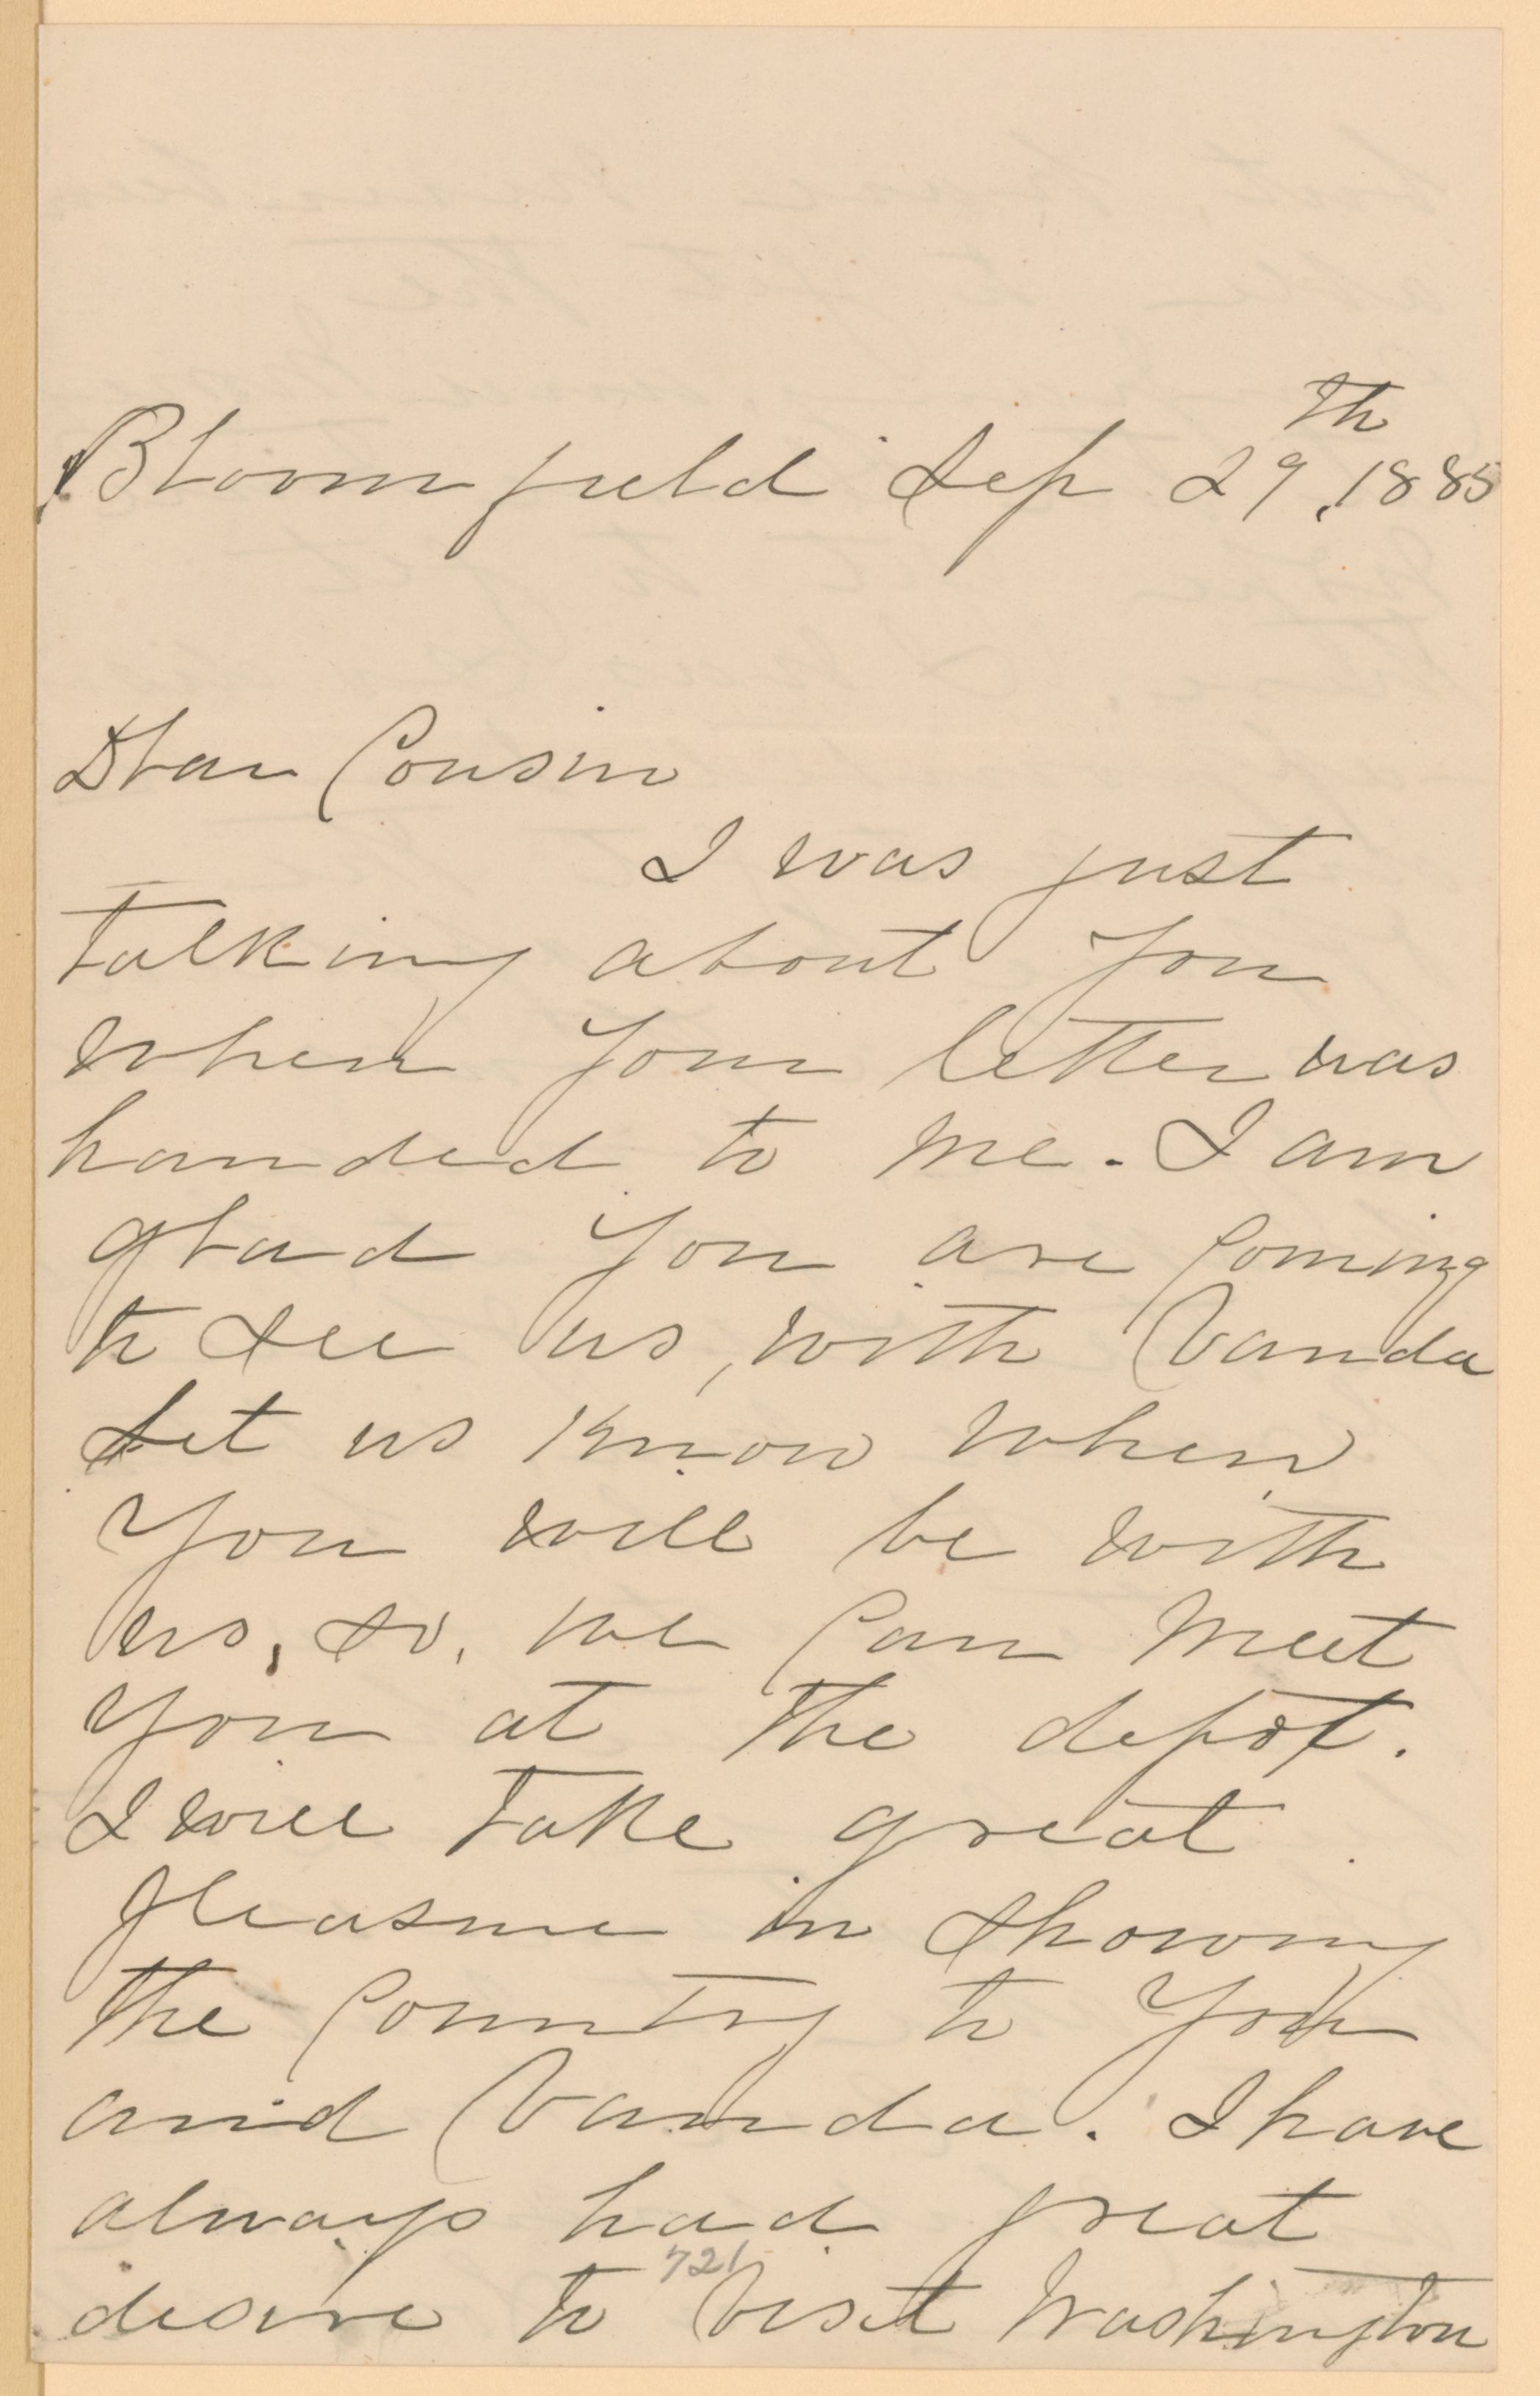 Bloomfield Sep 29th, 1885
Dear Cousin
I was just
talking about you
when your letter was
handed to me. I am
glad you are coming
to see us, with Vanda
Let us know when
you will be with
us, so, we can meet
you at the depot.
I will take great
pleasure in showing
the country to you
and Vanda. I have
always had great
721
desire to visit Washington